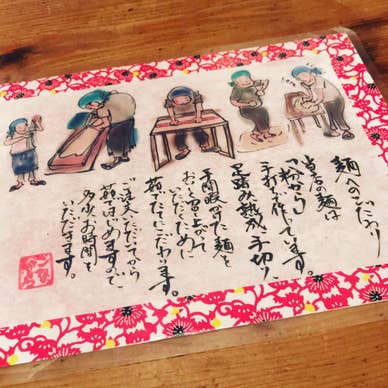 麺へのこだわり
当店の麺は
「粉から」
手打ちで作っています。
足踏み熟成手切り!
手間暇かけた麺を
おいしく召し上がって
いただくために
茹でたてにこだわります。
ご注文いただいてから
茹ではじめますので、
多少お時間を
いただきます。